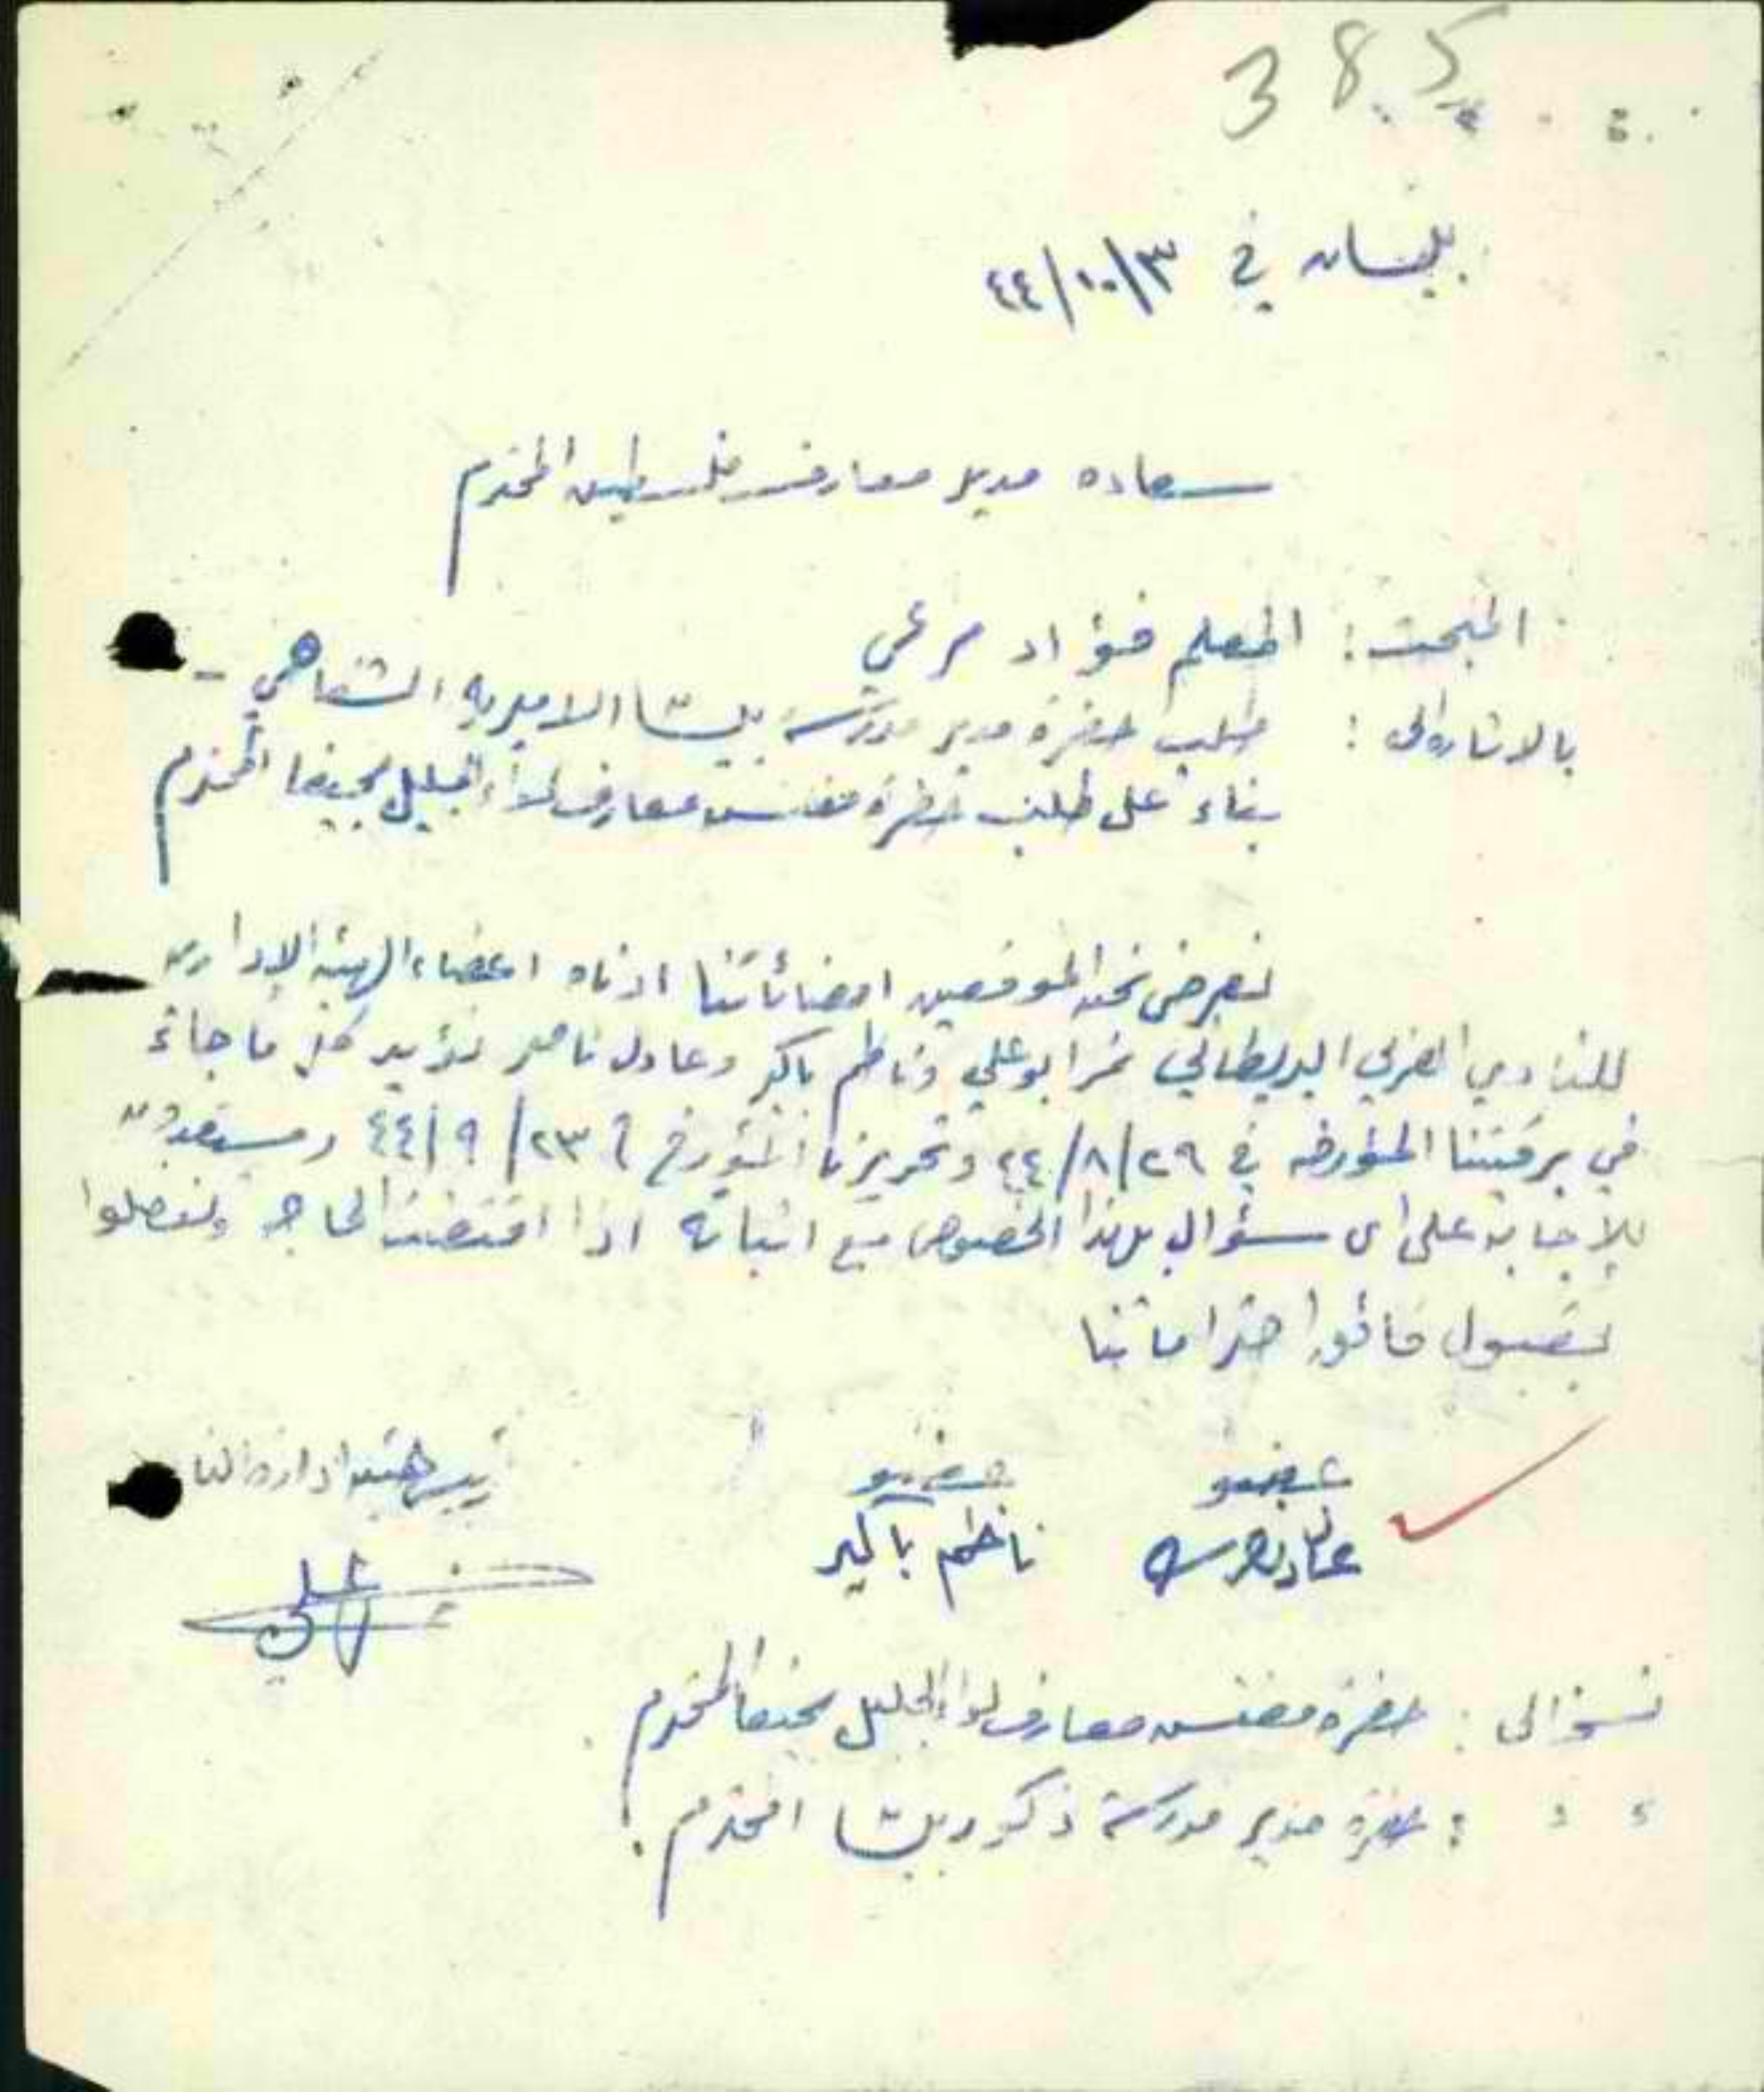 385
بيسان في ٣/١٠/٤٤
سعاده مدير معارف فلسطين المحترم
المبحث : المعلم فؤاد مرعي
بالاشاره الى : طلب حضرة مدير مدرسة بيسان الاميريه الشفاهي -
بناء على طلب حضرة مفتش معارف لواء الجليل بحيفا المحترم
نعرض نحن الموقعين امضائاتنا ادناه اعضاء الهيئة الاداريه
للنادي العربي البريطاني نمر ابو علي وناظم باكير وعادل ناصر نؤيد كل ما جاء
في برقيتنا المؤرخه في ٢٩/٨/٤٤ وتحريرنا المؤرخ ٢٣/٩/٤٤ ومستعدون
للاجابة على اى سؤال بهذا الخصوص مع اثباته اذا اقتضت الحاجه وتفضلوا
بقبول فائق احتراماتنا
عضو عضو رئيس هيئة ادارة النا
عادل ناظم باكير علي
نسخ الى : حضرة مفتش معارف لواء الجليل بحيفا المحترم
" " : حضرة مدير مدرسة ذكور بيسان المحترم .